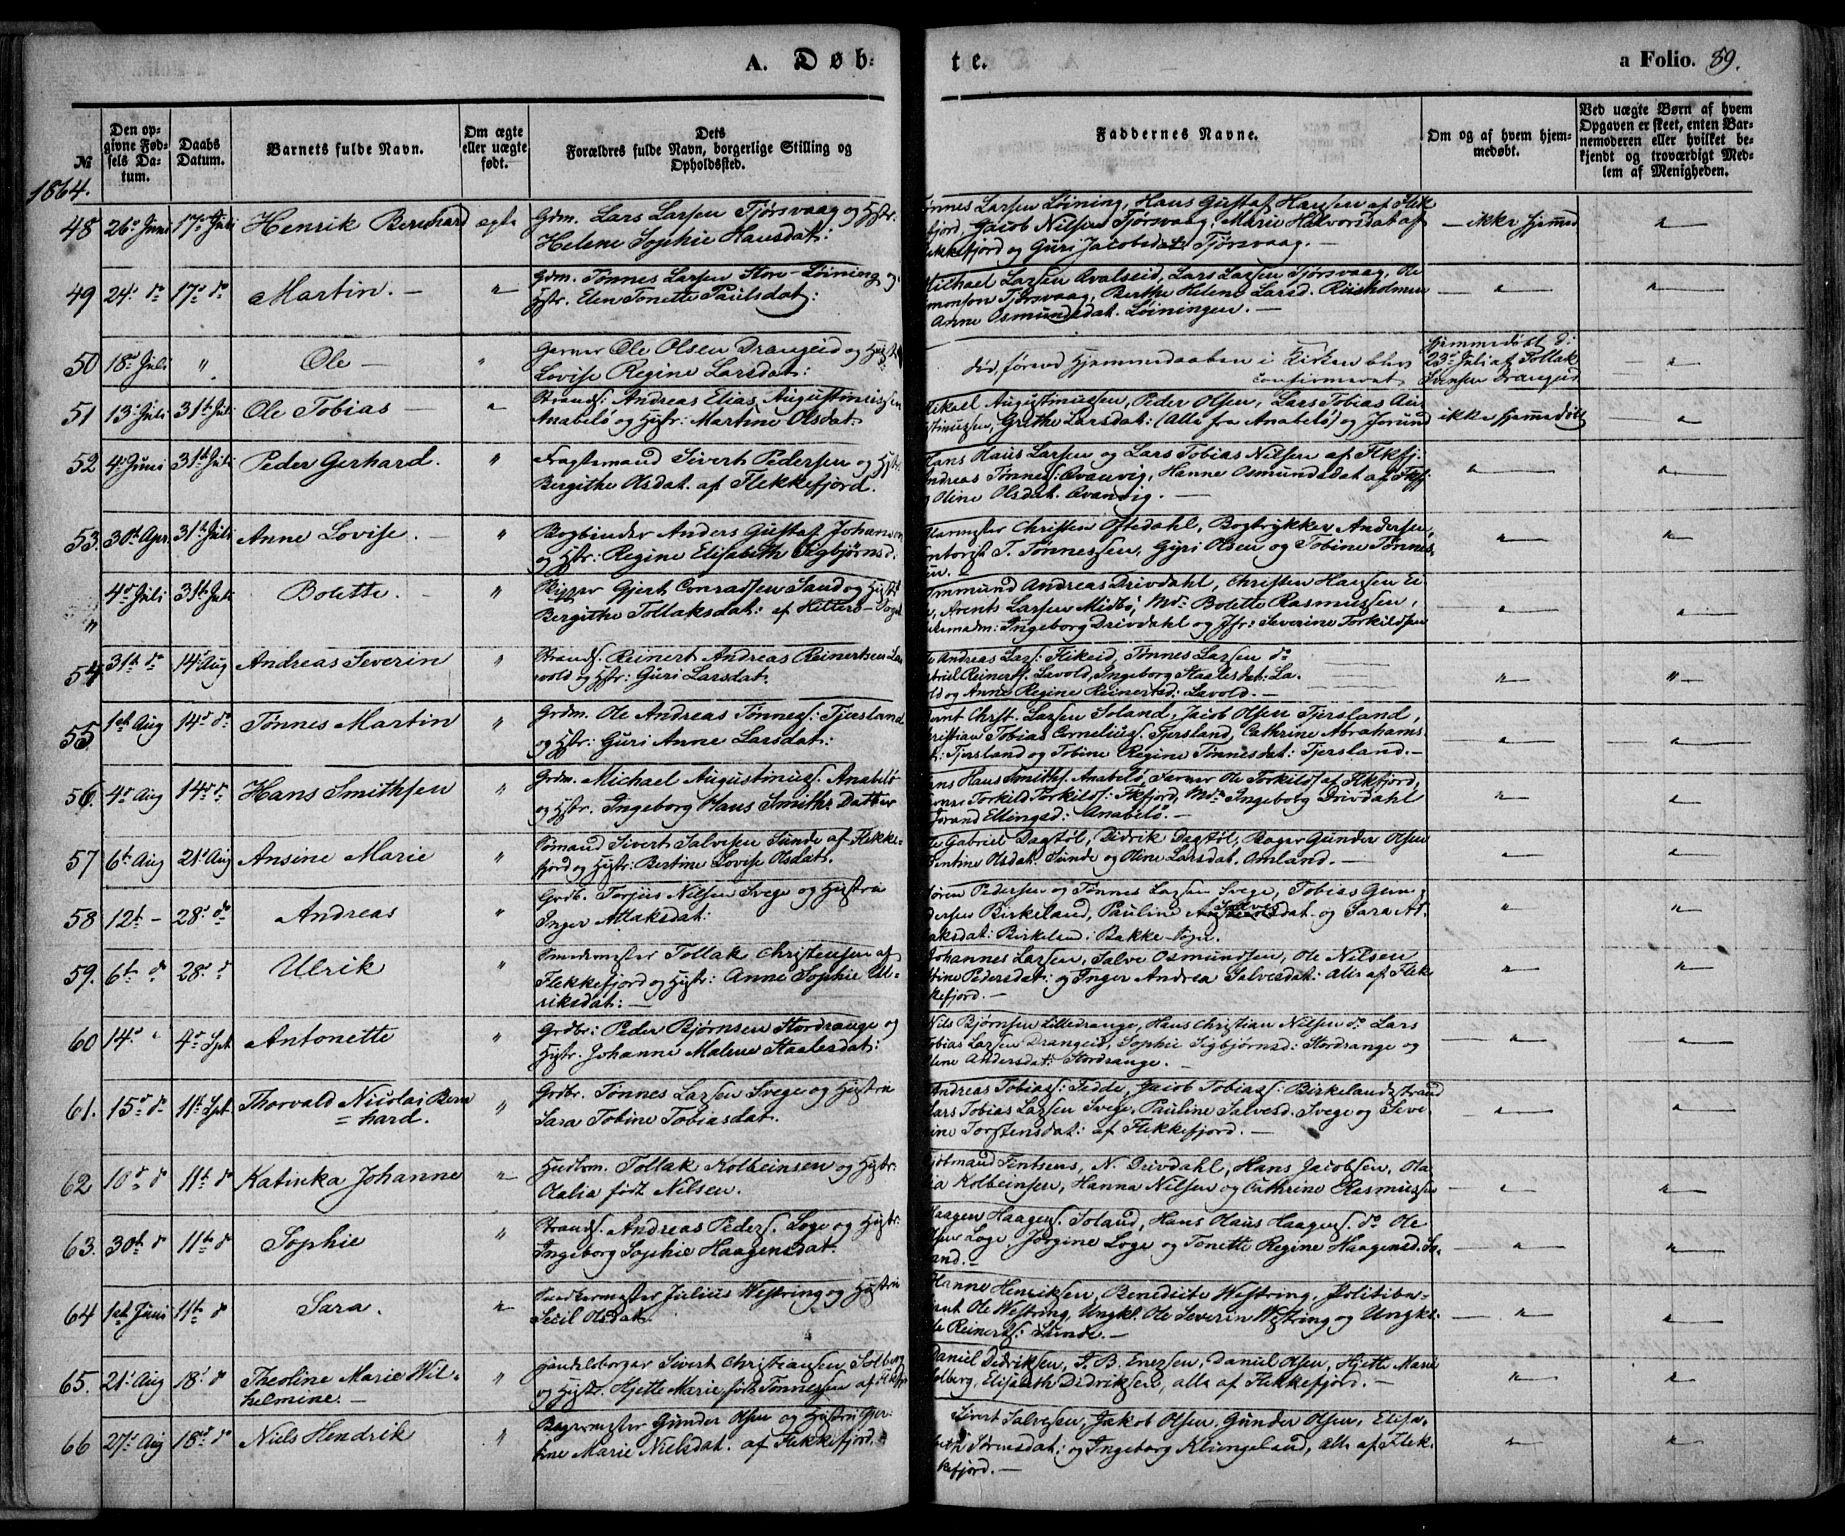 A. Døb-
te.
a Folio. 89.
№
Den op-
givne Fød-
sels Da-
tum.
Daabs
Datum.
Barnets fulde Navn.
Om ægte
eller uægte
født.
Dets
Forældres fulde Navn, borgerlige Stilling og
Opholdssted.
Faddernes Navne.
Om og af hvem hjem-
medøbt.
Ved uægte Børn af hvem
Opgaven er skeet, enten Bar-
nemoderen eller hvilket be-
kjendt og troværdigt Med-
lem af Menigheden.
1864.
48 26de Juni 17de Juli Henrik Bernhard ægte Grdm. Lars Larsen Tjørsvaag og Hstr:
Helene Sophie Hansdat:
Tønnes Larsen Løining, Hans Gustaf Hansen af Flek
kefjord, Jacob Nilsen Tjørsvaag, Marie Halvorsdat af
Flekkefjord og Guri Jacobsdat Tjørsvaag. —
— ikke hjemmed "
49 24de do 17de do Martin. — " Grdm. Tønnes Larsen Store-Løining og
Hstr. Elen Tonette Paulsdat:
Michael Larsen Avalseid, Lars Larsen Tjørsvaag, Ole
Simonson Tjørsvaag, Berthe Helene Larsd. Riisholmen
Anne Osmundsdat. Løiningen. —
" "
50 18de Juli " Ole — " Garver Ole Olsen Drangeid og Hustr
Lovise Regine Larsdat:
død, førend Hjemmedaaben i Kirken blev
confirmeret
Hjemmedøbt d:
23de Juli af Tollak
Svensen Drangeid
"
51 13de Juli 31te Juli Ole Tobias — " Strands: Andreas Elias Augustinussen
Anabelø og Hstr: Martine Olsdat.
Mikael Augustinussen, Peder Olsen, Lars Tobias Au
gustinussen, Grethe Larsdat: (Alle fra Anabelø) og Jorund
ikke hjemmedøbt "
52 4de Juni 31te Juli Peder Gerhard. " Fragtemand Sivert Pedersen og Hstr
Bergithe Olsdat. af Flekkefjord.
Hans Haus Larsen og Lars Tobias Nilsen af Flkfj.
Andreas Tønness: Qvanvig, Hanne Osmundsdat af Flkfj
og Oline Olsdat. Qvanvig. —
" "
53. 30te Apr 31te Juli Anne Lovise. — " Bogbinder Anders Gustaf Johansen
og Hstr: Regine Elisabeth Sigbjørnsd.
Christen Oftedahl, Bogtrykker Andersen,
T. Tønnessen, Guri Olsen og Tobine Tønnes-
sen. —
" "
" 4de Juli 31te Juli Bolette. — " Skipper Gjert Conradsen Sand og Hustr
Bergithe Tollaksdat: af Hitterø-Sogn
Ommund Andreas Drivdahl, Christen Hansen Ei
Arents Larsen Midbø, Mdm Bolette Rasmussen,
Ingeborg Drivdahl og Jfr: Severine Torkildsen
" "
54 31te do 14de Aug Andreas Severin " Strands. Reinert Andreas Reinertsen La-
vold og Hstr: Guri Larsdat.
Ole Andreas Lars: Flikeid, Tønnes Larsen do
Gabriel Reinerts. Lavold, Ingeborg Staalesdat: La-
vold og Anne Regine Reinertsd: Lavold. —
" "
55 1ste Aug 14de do Tønnes Martin " Grdm. Ole Andreas Tønness: Tjersland
og Hstr: Guri Anne Larsdat:
Bernt Christ. Larsen Soland, Jacob Olsen Tjersland,
Christian Tobias Cornelius: Tjersland, Cathrine Abrahams-
dat: Tjersland og Tobine Regine Tønnesdat: Tjersland. —
" "
56. 4de Aug 14de do Hans Smithsen " Grdm. Michael Augustinus. Anabelø
og Hstr. Ingeborg Hans Smiths Datter
Jens Hans Smiths. Anabelø, Garver Ole Torkilds af Flkfjord,
Torkild Torkilds: Flkfjord, Mdm Ingeborg Drivdahl
Jorand Ellingsd: Anabelø.
" "
57 6te Aug 21de Aug Ansine Marie " Sømand Sivert Salvesen Sunde af Flekke-
fjord og Hstr: Bertine Lovise Olsdat.
Ole Gabriel Dagsøl, Didrik Dagsøl, Bager Gunder Olsen
Sentine Olsdat. Sunde og Oline Larsdat. Omland. —
" "
58 12te — 28de do Andreas " Grdb. Torjus Nilsen Svege og Hustru
Inger Atlaksdat:
Søren Pedersen og Tønnes Larsen Svege, Tobias Gun-
dersen Birkeland, Pauline Salves dat. og Sara At-
laksdat: Birkeland i Bakke-Sogn.
" "
59. 6te do 28de do Ulrik " Smedemester Tollak Christensen af
Flekkefjord og Hstr: Anne Sophie Ul-
riksdat: —
Johannes Larsen, Salve Osmundsen, Ole Nilsen
Stine Pedersdat: og Inger Andrea Salvesdat: alle af Flek-
kefjord. —
" "
60 14de " 4de Spt Antonette " Grdbr: Peder Bjørnsen Stordrange og
Hstr. Johanne Malene Staalesdat:
Nils Bjørnsen Lilledrange, Hans Christian Nilsen do Lars
Tobias Larsen Drangeid, Sophie Sigbjørnsd: Stordrange og
Andersdat: Stordrange.
" "
61. 15de do 11te Spt Thorvald Nicolai Bern
hard. " Grdbr. Tønnes Larsen Svege og Hustru
Sara Tobine Tobiasdat.
Andreas Tobias: Fedde, Jacob Tobias: Birkelandsstrand
Lars Tobias Larsen Svege, Pauline Salvesd. Svege og Seve-
rine Torstensdat: af Flekkefjord. —
" "
62 10de do 11te do Katinka Johanne " Husbm. Tollak Kolbeinsen og Hstr.
Odalia født Nilsen.
N. Drivdahl, Hans Jacobsen, Oda-
lia Kolbeinsen, Hanna Nilsen og Cathrine Rasmussen
" "
63. 30te do 11te do Sophie " Strands. Andreas Peders. Loge og Hstr:
Ingeborg Sophie Haagensdat.
Haagen Haagens. Soland, Hans Olaus Haagens. do Ole
Loge, Jørgine Loge og Tonette Regine Haagensd. So-
land. —
" "
64 1ste Juni 11te do Sara. " Snedkermester Julius Westring og Hustru
Secil Olsdat.
Hanne Henriksen, Benedicte Westring, Politibe-
tjent Ole Westring, Ungkl. Ole Severin Westring og Ungk:
Ole Reinerts: Lunde. —
" "
65. 21de Aug 18de do Theoline Marie Wil-
helmine. — " Handelsborger Sivert Christiansen Solberg
og Hstr. Hjette Marie født Tønnessen af Flkfj
Daniel Didriksen, J. B. Enersen, Daniel Olsen, Hjette Marie
Solberg, Elisabeth Didriksen, alle af Flekkefjord. —
" "
66 27de Aug 18de do Niels Hendrik " Bagermester Gunder Olsen og Hustru Ger-
tine Marie Nielsdat. af Flekkefjord.
Sivert Salvesen, Jakob Olsen, Gunder Olsen, Elisa-
beth Sørensdat: og Ingeborg Klungeland, alle af Flek-
kefjord. —
" "